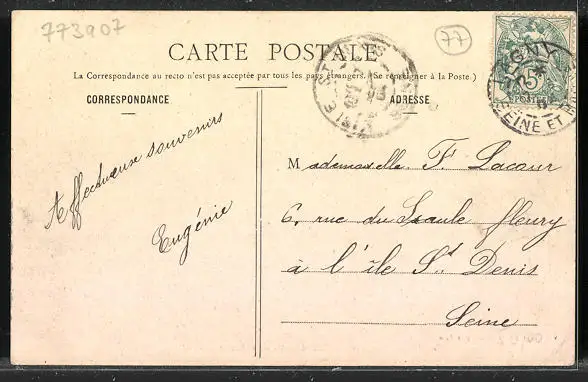 773907
77
CARTE POSTALE
La Correspondance au recto n'est pas acceptée par tous les pays étrangers. (Se renseigner à la Poste.)
CORRESPONDANCE
ADRESSE
LAGNY
SEINE ET
5
POSTES
Affectueux souvenirs
Eugénie
Mademoiselle F. Lacour
6, rue du Saule fleury
à l'île St. Denis
Seine